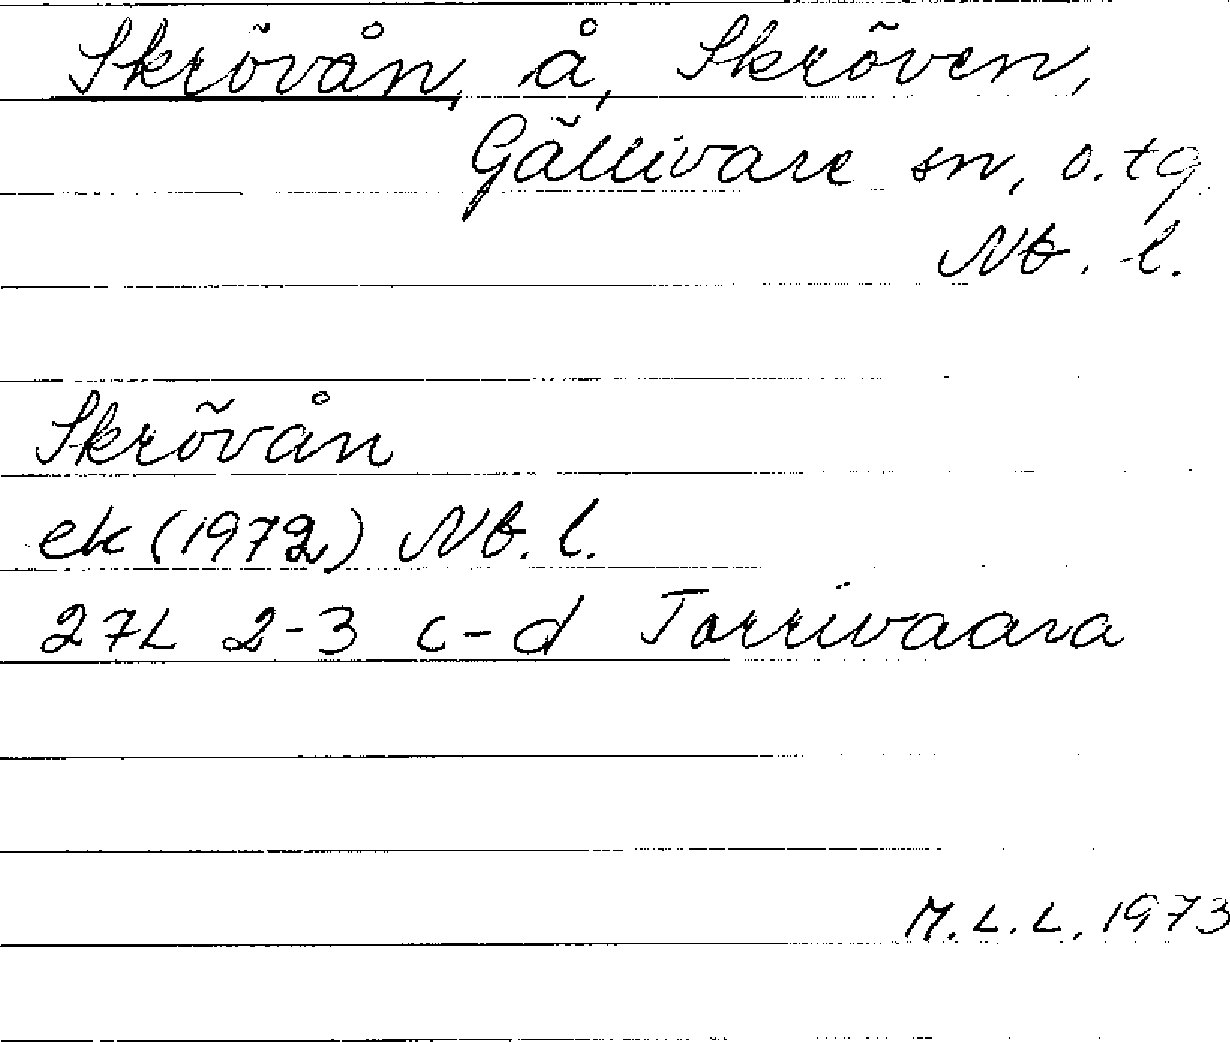 Skrövån, å, Skröven,
Gällivare sn, o. tg
Nb. l.
Skrövån
ek (1972) Nb. l.
27L 2-3 c-d Torrivaara
M.L.L. 1973